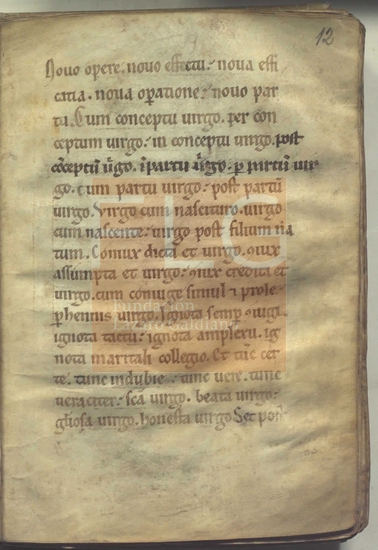 12
Novo opere. novo effectu. nova effi
catia. nova oparatione. novo par
tu. Cum conceptu virgo. per con
ceptum virgo. in conceptu virgo. post
cōceptū v̄go. ī partu v̄go. p partū vir
go. cum partu virgo. post partū
virgo. Virgo cum nascituro. virgo
cum nascente. virgo post filium na
tum. Coniux dicta et virgo.
assumpta et virgo. credita et
virgo. cum coniuge simul prole
phennis virgo. Ignota semp iugi.
ignota tactu. ignota amplexu. ig
nota maritali collegio. Et tūc cer
te. tunc indubie. tunc vere. tunc
veraciter. sca virgo. beata virgo.
gliosa virgo. honesta virgo Set post
fundación
Lázaro Galdiano